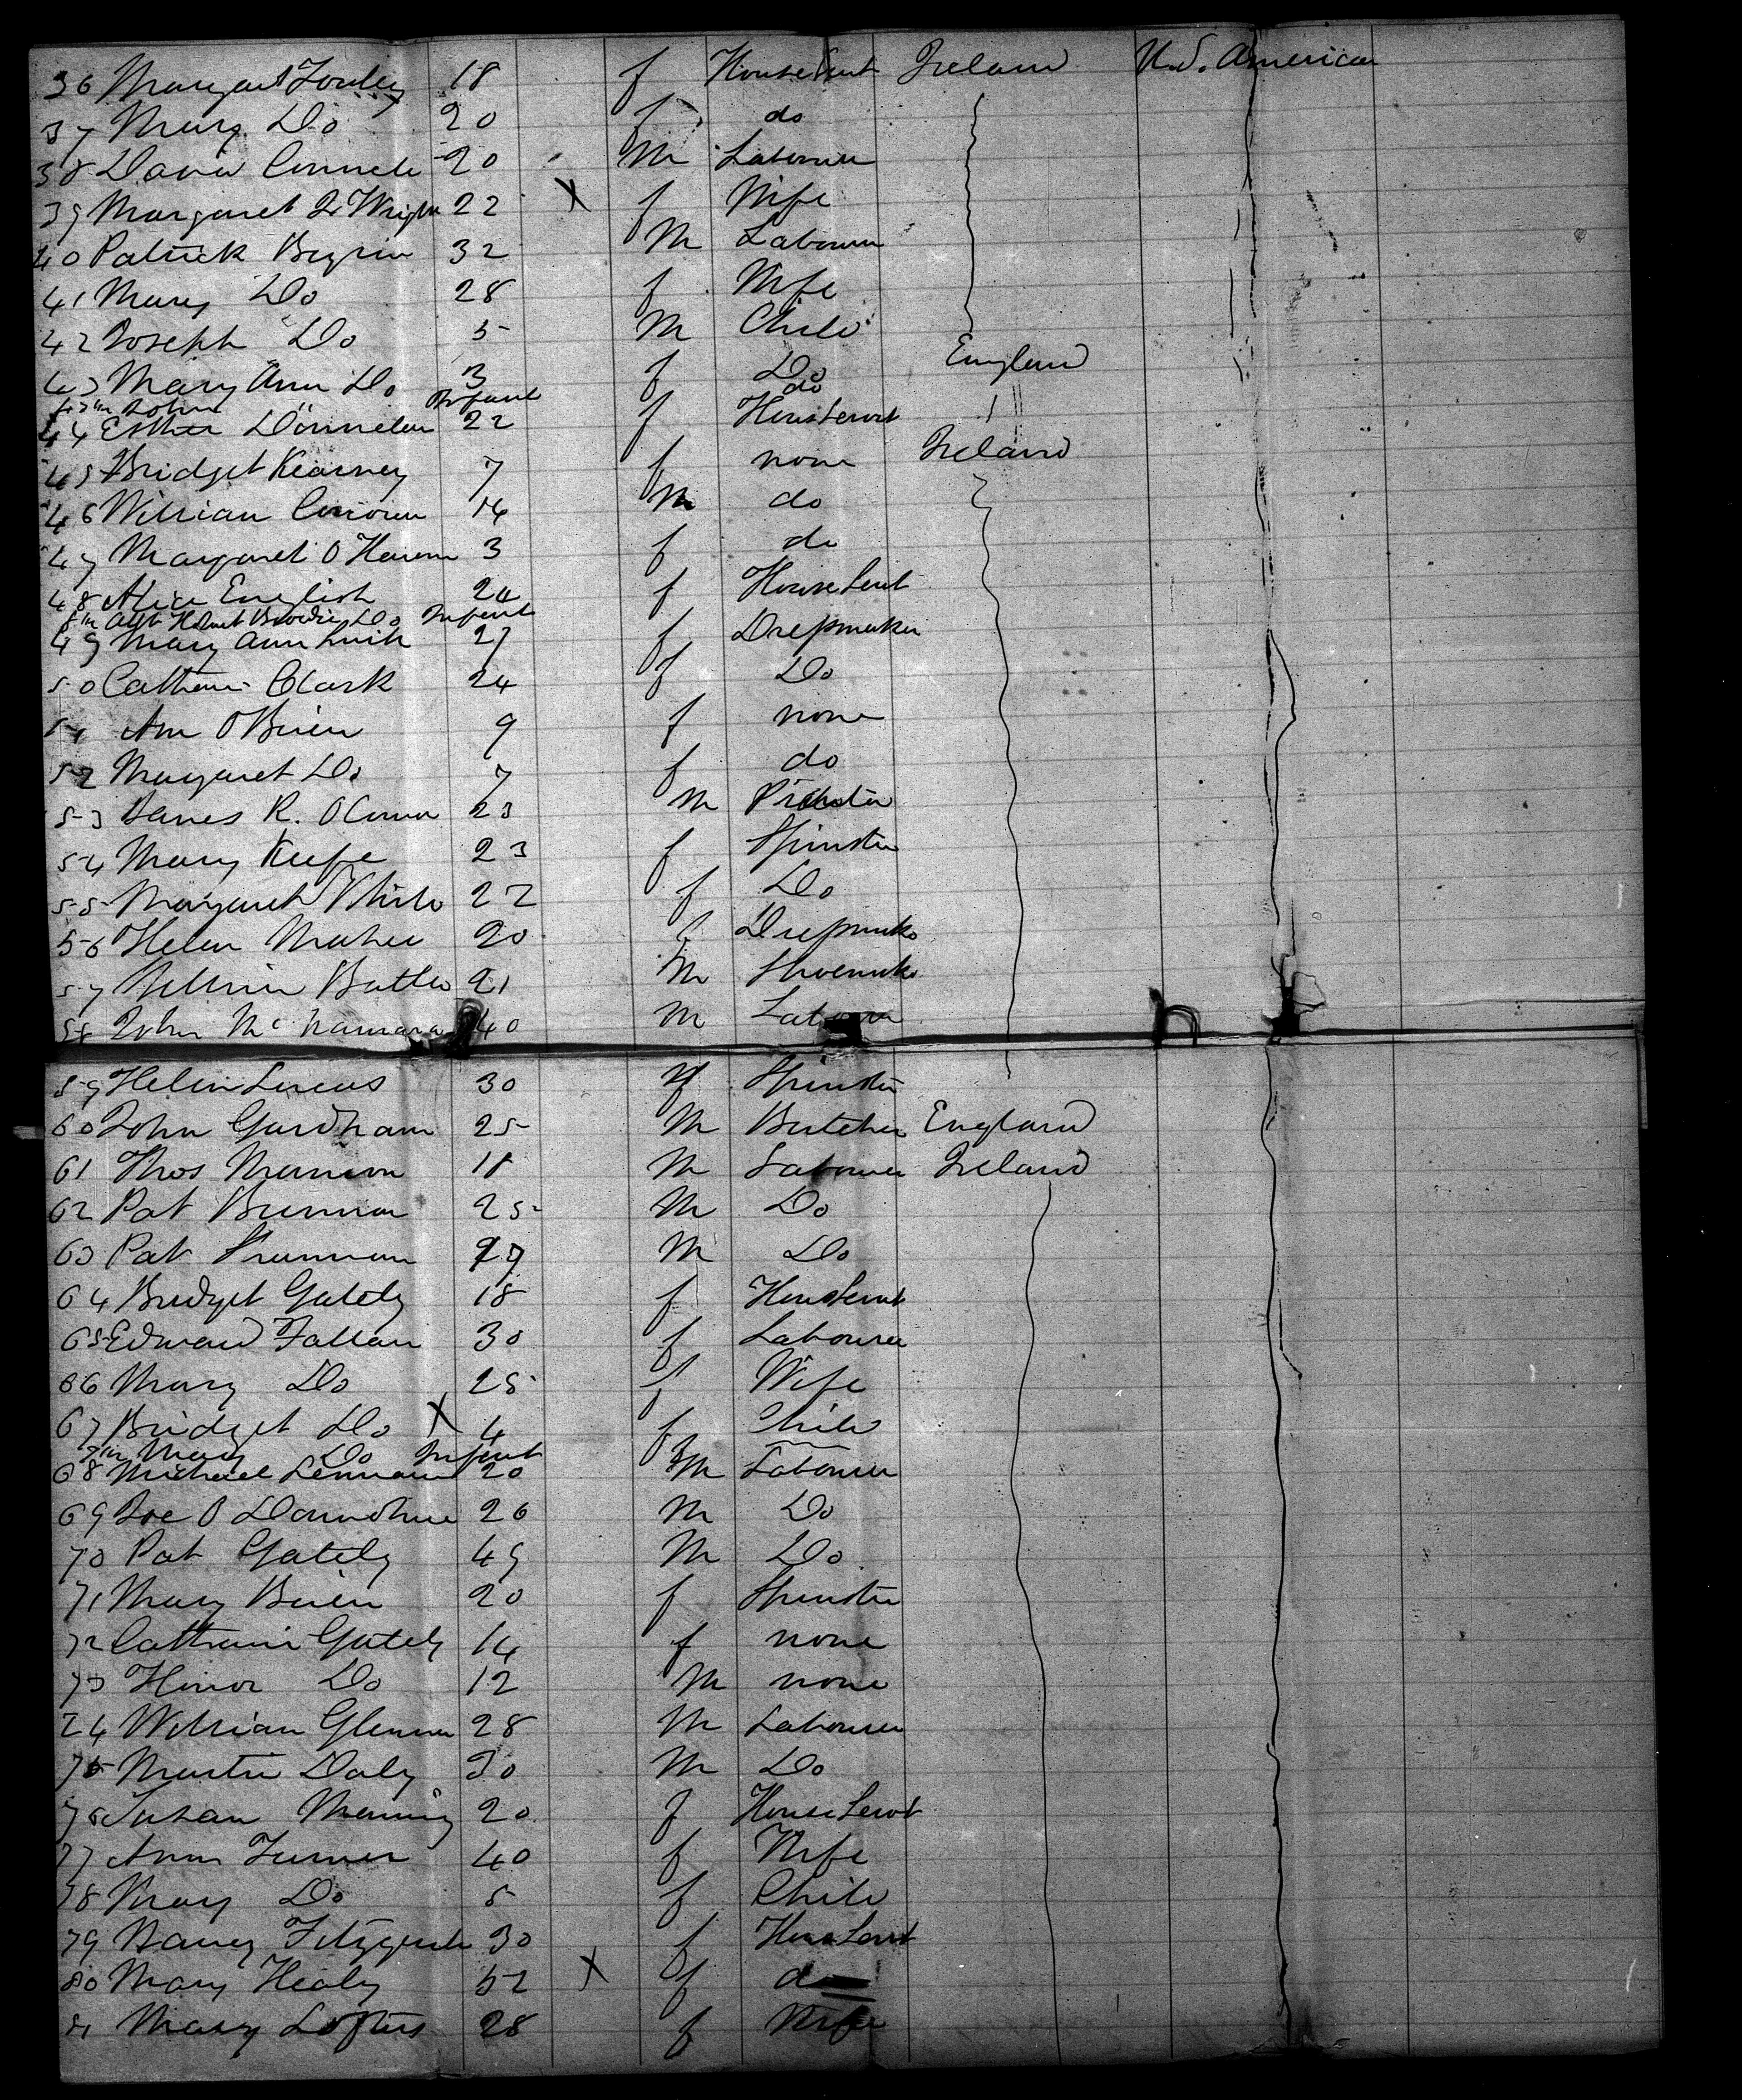 36 Margaret 18 f House Servt Ireland U.S. America
37 Mary Do 20 f do
38 David 20 M Labourer
39 Margaret 22 X f Wife
40 Patrick 32 M Labourer
41 Mary Do 28 f Wife
42 Joseph Do 5 M Child
43 Mary Ann Do 3 f Do England
John Infant do
44 Esther Donnelan 22 f House Servt
45 Bridget Kearney 7 f none Ireland
46 William 14 M do
47 Margaret O 3 f do
48 Alice English 24 f House Servt
Do Infant
49 Mary Ann 27 f Dressmaker
50 Catherine Clark 24 f Do
51 Ann O Brien 9 f none
52 Margaret Do 7 f do
53 James R. O Connor 23 M
54 Mary Keefe 23 f Spinster
55 Margaret White 22 f Do
56 Helen Maher 20 f Dressmaker
57 William Butler 21 M Shoemaker
58 John McNamara 40 M Labourer
59 Helen 30 f Spinster
60 John Gardham 25 M Butcher England
61 Thos 18 M Labourer Ireland
62 Pat Brennan 25 M Do
63 Pat M Do
64 Bridget Gately 18 f House Servt
65 Edward Fallan 30 f Labourer
66 Mary Do 25 f Wife
67 Bridget Do X 4 f Child
Mary Do Infant
68 Michael Lennan 20 M Labourer
69 Joe O Donnohue 26 M Do
70 Pat Gately 49 M Do
71 Mary Brien 20 f Spinster
72 Catherine Gately 14 f none
73 Honor Do 12 M none
74 William 28 M Labourer
75 Martin Daly 30 M Do
76 Susan Manning 20 f House Servt
77 Ann Turner 40 f Wife
78 Mary Do 5 f Child
79 Nancy Fitzgerald 30 f House Servt
80 Mary Healy 52 X f do
81 Mary Loftus 28 f Wife